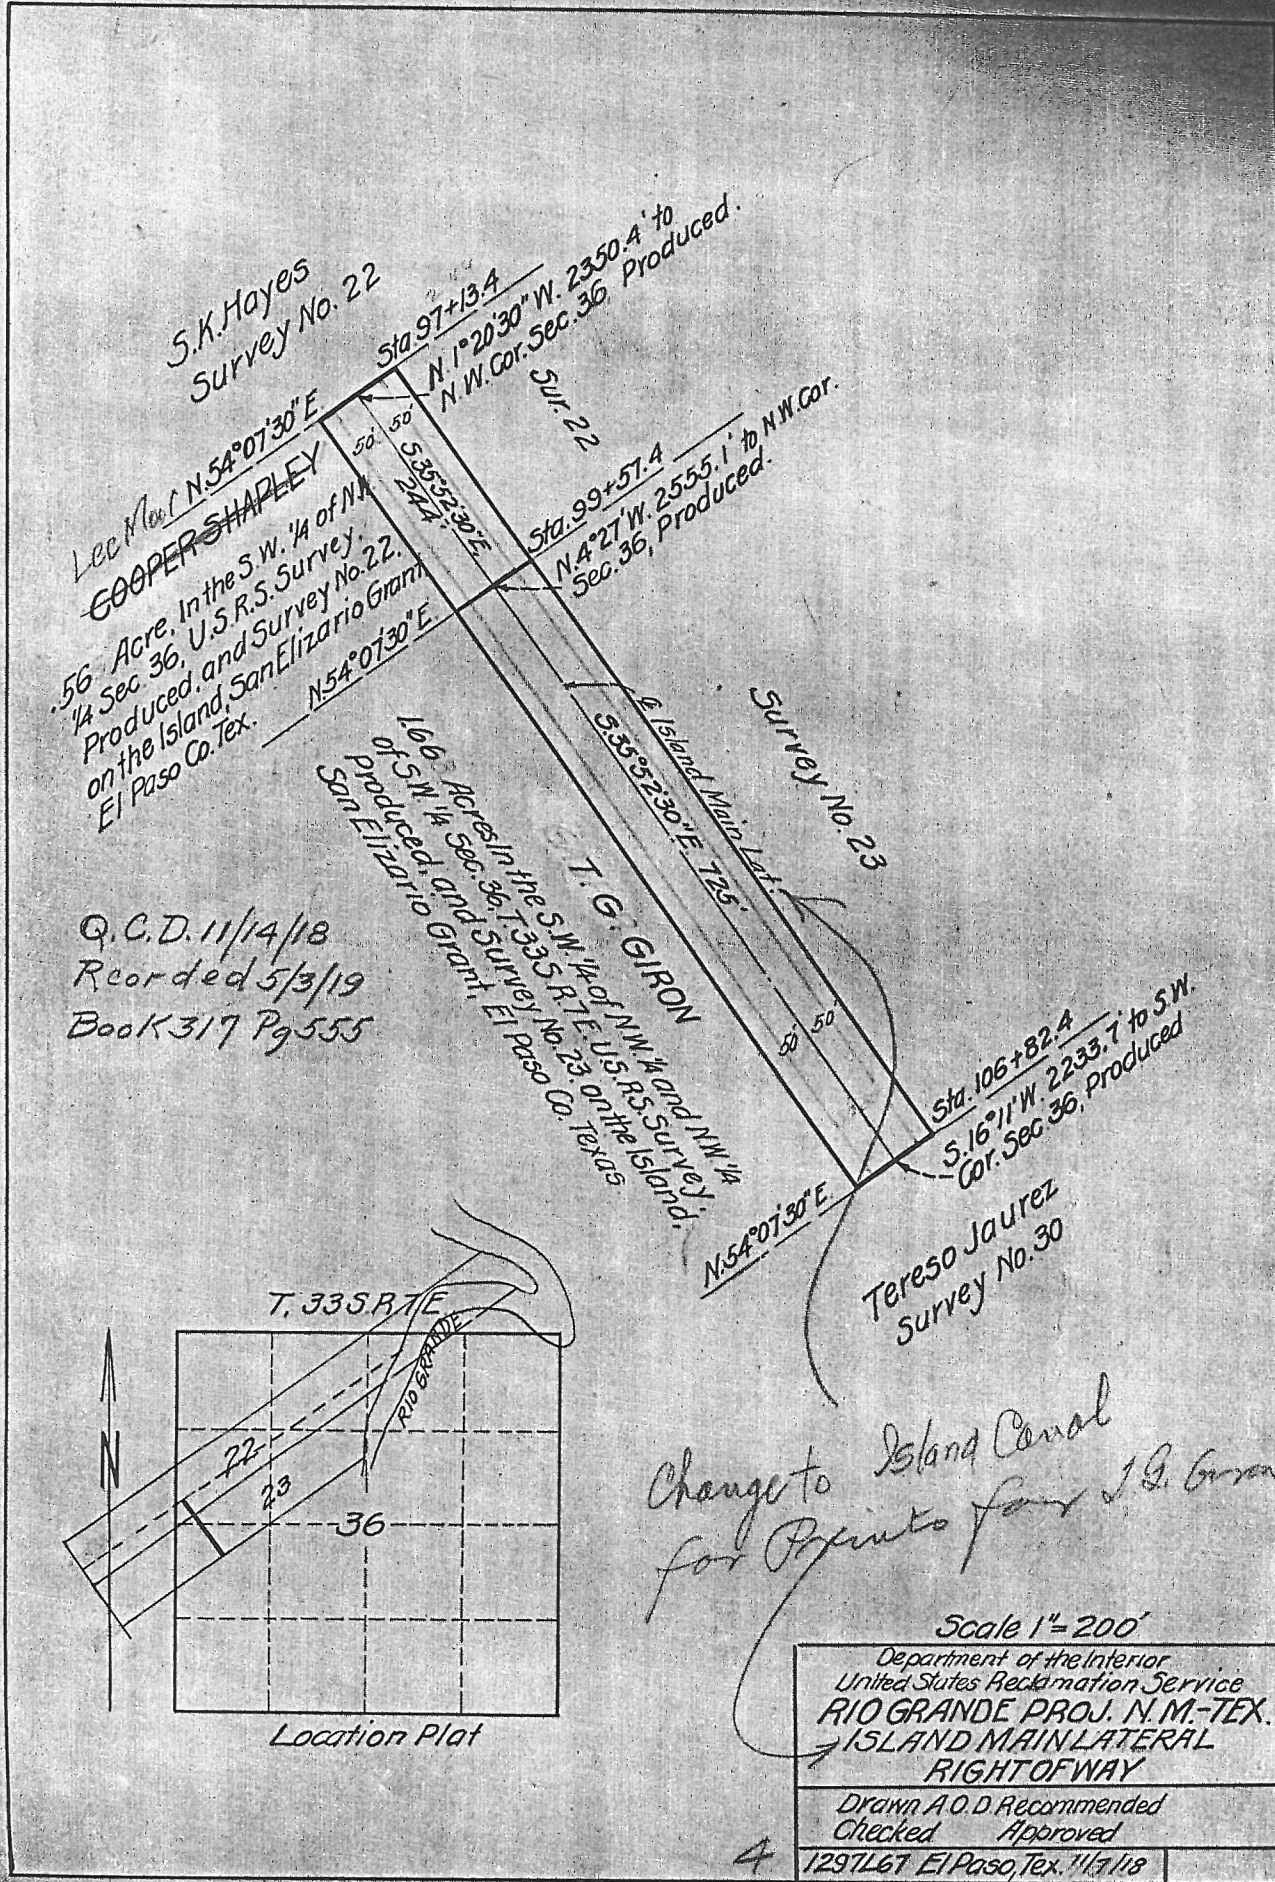 S.K. Hayes
Survey No. 22
Sta. 97+13.4
N. 1° 20' 30" W. 2350.4' to
N.W. Cor. Sec. 36 Produced.
Sur. 22
N. 54° 07' 30" E.
50' 50'
S 35° 52' 30" E.
244'
Lee
COOPER SHAPLEY
.56 Acre. In the S.W. 1/4 of N.W.
1/4 Sec. 36, U.S.R.S. Survey,
Produced, and Survey No. 22.
on the Island, San Elizario Grant
El Paso Co. Tex.
Sta. 99+57.4
N. 4° 27' W. 2555.1' to N.W. Cor.
Sec. 36, Produced.
N. 54° 07' 30" E.
℄ Island Main Lat.
S 35° 52' 30" E. 725'
Survey No. 23
T. G. GIRON
1.66 Acres In the S.W. 1/4 of N.W. 1/4 and N.W. 1/4
of S.W. 1/4 Sec. 36, T. 33 S R. 7 E. U.S.R.S. Survey,
produced, and Survey No. 23. on the Island,
San Elizario Grant, El Paso Co. Texas
Q. C. D. 11/14/18
Rcorded 5/3/19
Book 317 Pg 555
50' 50'
Sta. 106+82.4
S. 16° 11' W. 2233.7' to S.W.
Cor. Sec 36, Produced
N. 54° 07' 30" E.
Tereso Jaurez
Survey No. 30
T. 33 S R 7 E
RIO GRANDE
N
22
23
36
Location Plat
Change to Island Canal
for Prints for T. G. Giron
Scale 1" = 200'
Department of the Interior
United States Reclamation Service
RIO GRANDE PROJ. N.M.-TEX.
ISLAND MAIN LATERAL
RIGHT OF WAY
Drawn A.O.D. Recommended
Checked Approved
4
1297L67 El Paso, Tex. 11/7/18